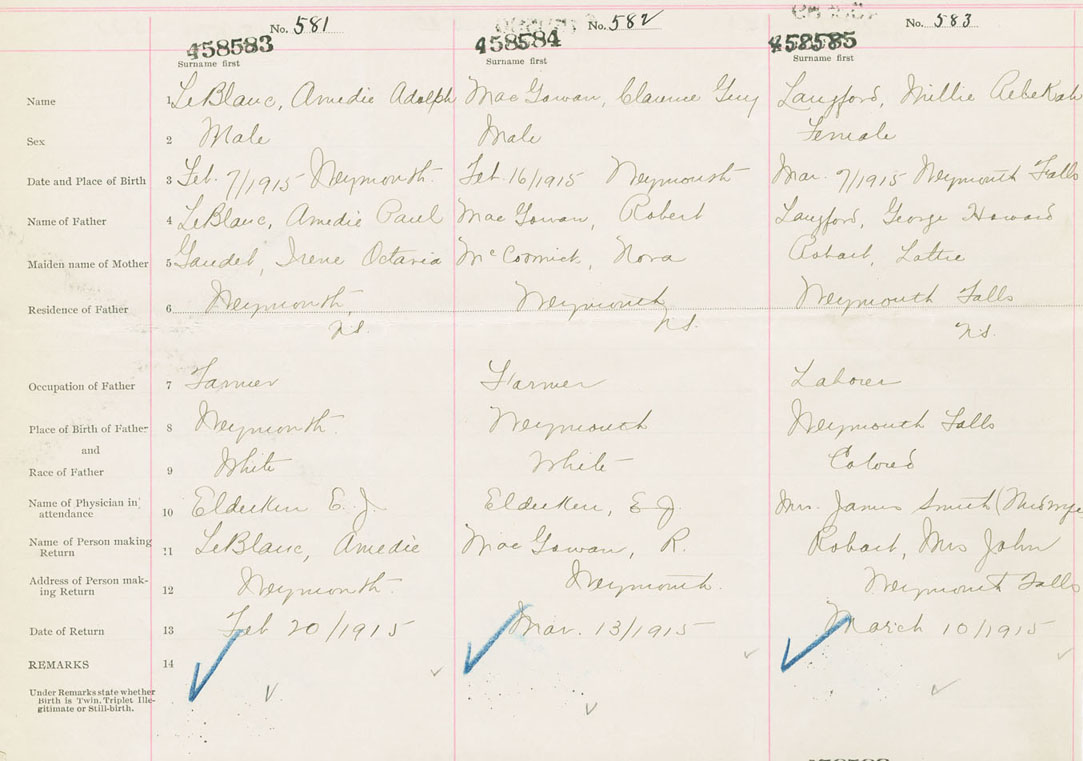 No. 581 No. 582 No. 583
458583 458584 458585
Surname first Surname first
Name 1 LeBlanc, Amedie Adolph Mac Gowan, Clarence Guy Langford, Millie Rebekah
Sex 2 Male Male Female
Date and Place of Birth 3 Feb. 7/1915 Weymouth. Feb. 16/1915 Weymouth Mar. 7/1915 Weymouth Falls
Name of Father 4 LeBlanc, Amedie Paul Mac Gowan, Robert Langford, George Howard
Maiden name of Mother 5 Gaudet, Irene Octavia McCormick, Nora Robart, Lottie
Residence of Father 6 Weymouth, Weymouth Weymouth Falls
N.S. N.S. N.S.
Occupation of Father 7 Farmer Farmer Laborer
Place of Birth of Father 8 Weymouth. Weymouth Weymouth Falls
and
Race of Father 9 White White Colored
Name of Physician in attendance 10 Elderkin E. J. Elderkin, E. J. Mrs. James Smith (Midwife
Name of Person making Return 11 LeBlanc, Amedie Mac Gowan, R. Robart, Mrs John
Address of Person making Return 12 Weymouth. Weymouth. Weymouth Falls
Date of Return 13 Feb 20/1915 Mar. 13/1915 March 10/1915
REMARKS 14
Under Remarks state whether
Birth is Twin, Triplet Ille-
gitimate or Still-birth.